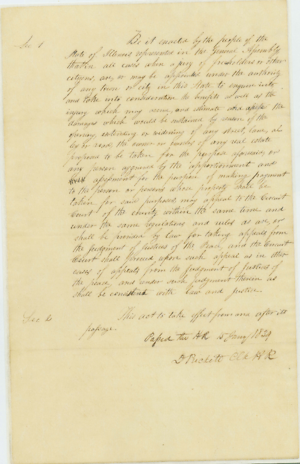 Sec 1 Be it enacted by the people of the
State of Illinois represented in the General Assembly
That in all cases when a jury of freeholders or other
citizens, are, or may be appointed under the authority
of any town or city in this State to enquire into
and take into consideration the benefits as well as the
injury which may accrue, and estimate and assess the
damages which would be sustained by reason of the
opening, extending or widening of any street, lane, al-
ley or road, the owner or person of any real estate
proposed to be taken for the purposes aforesaid, or
any person aggrieved by the apportionment and
assessment for the purpose of making payment
to the person or persons whose property shall be
taken for such purposes may appeal to the Circuit
Court of the county within the same time and
under the same regulations and rules as are, or
shall be provided by law for taking appeals from
the judgment of Justices of the Peace, and the Circuit
Court shall proceed upon such appeal as in other
cases of appeals from the judgment of Justices of
the peace, and render such judgment therein as
shall be consistent with law and justice.
Sec 2 This act to take effect from and after its
passage.
Passed the H.R. 15 Jany 1839
D Prickett Clk H.R